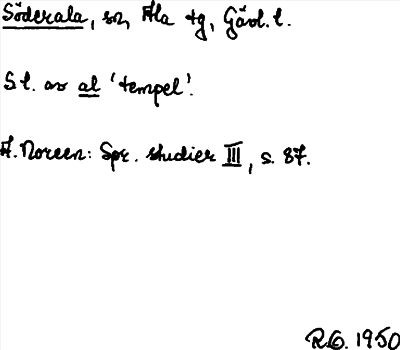 Söderala, sn, Ala tg, Gävl. l.
S l. av al 'tempel'.
A. Noreen: Spr. studier III, s. 87.
R.G. 1950